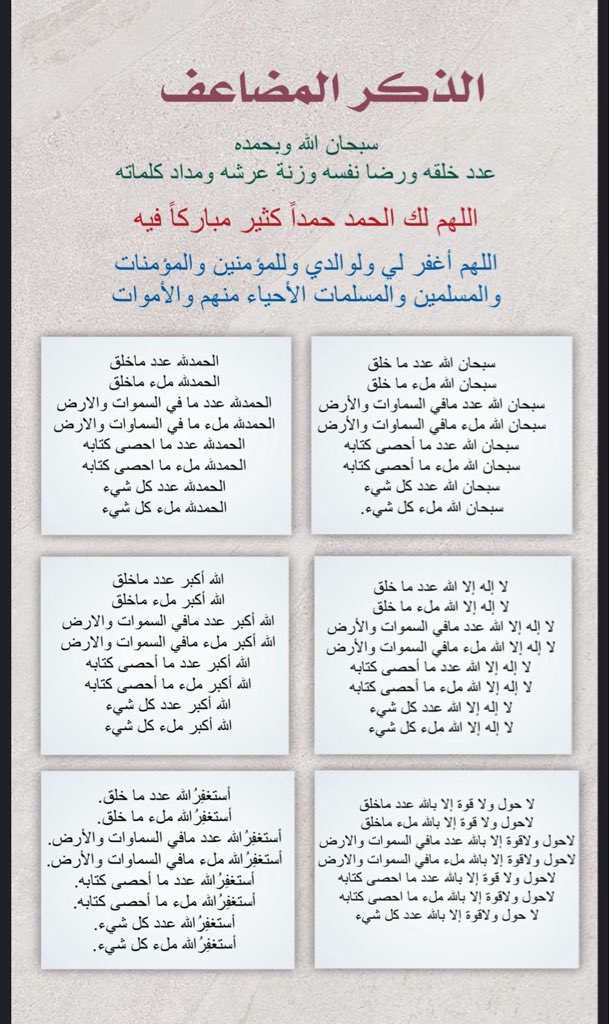 الذكر المضاعف
سبحان الله وبحمده
عدد خلقه ورضا نفسه وزنة عرشه ومداد كلماته
اللهم لك الحمد حمداً كثير مباركاً فيه
اللهم أغفر لي ولوالدي وللمؤمنين والمؤمنات
والمسلمين والمسلمات الأحياء منهم والأموات
سبحان الله عدد ما خلق
سبحان الله ملء ما خلق
سبحان الله عدد مافي السماوات والأرض
سبحان الله ملء مافي السماوات والأرض
سبحان الله عدد ما أحصى كتابه
سبحان الله ملء ما أحصى كتابه
سبحان الله عدد كل شيء
سبحان الله ملء كل شيء.
الحمدلله عدد ماخلق
الحمدلله ملء ماخلق
الحمدلله عدد ما في السموات والارض
الحمدلله ملء ما في السماوات والارض
الحمدلله عدد ما احصى كتابه
الحمدلله ملء ما احصى كتابه
الحمدلله عدد كل شيء
الحمدلله ملء كل شيء
لا إله إلا الله عدد ما خلق
لا إله إلا الله ملء ما خلق
لا إله إلا الله عدد مافي السموات والأرض
لا إله إلا الله ملء مافي السموات والأرض
لا إله إلا الله عدد ما أحصى كتابه
لا إله إلا الله ملء ما أحصى كتابه
لا إله إلا الله عدد كل شيء
لا إله إلا الله ملء كل شيء
الله أكبر عدد ماخلق
الله أكبر ملء ماخلق
الله أكبر عدد مافي السموات والارض
الله أكبر ملء مافي السموات والارض
الله أكبر عدد ما أحصى كتابه
الله أكبر ملء ما أحصى كتابه
الله أكبر عدد كل شيء
الله أكبر ملء كل شيء
لا حول ولا قوة إلا بالله عدد ماخلق
لاحول ولا قوة إلا بالله ملء ماخلق
لاحول ولاقوة إلا بالله عدد مافي السموات والارض
لاحول ولاقوة إلا بالله ملء مافي السموات والارض
لاحول ولا قوة إلا بالله عدد ما احصى كتابه
لاحول ولاقوة إلا بالله ملء ما احصى كتابه
لا حول ولاقوة إلا بالله عدد كل شيء
أستغفِرُالله عدد ما خلق.
أستغفِرُالله ملء ما خلق.
أستغفِرُالله عدد مافي السماوات والأرض.
أستغفِرُالله ملء مافي السماوات والأرض.
أستغفِرُالله عدد ما أحصى كتابه.
أستغفِرُالله ملء ما أحصى كتابه.
أستغفِرُالله عدد كل شيء.
أستغفِرُالله ملء كل شيء.